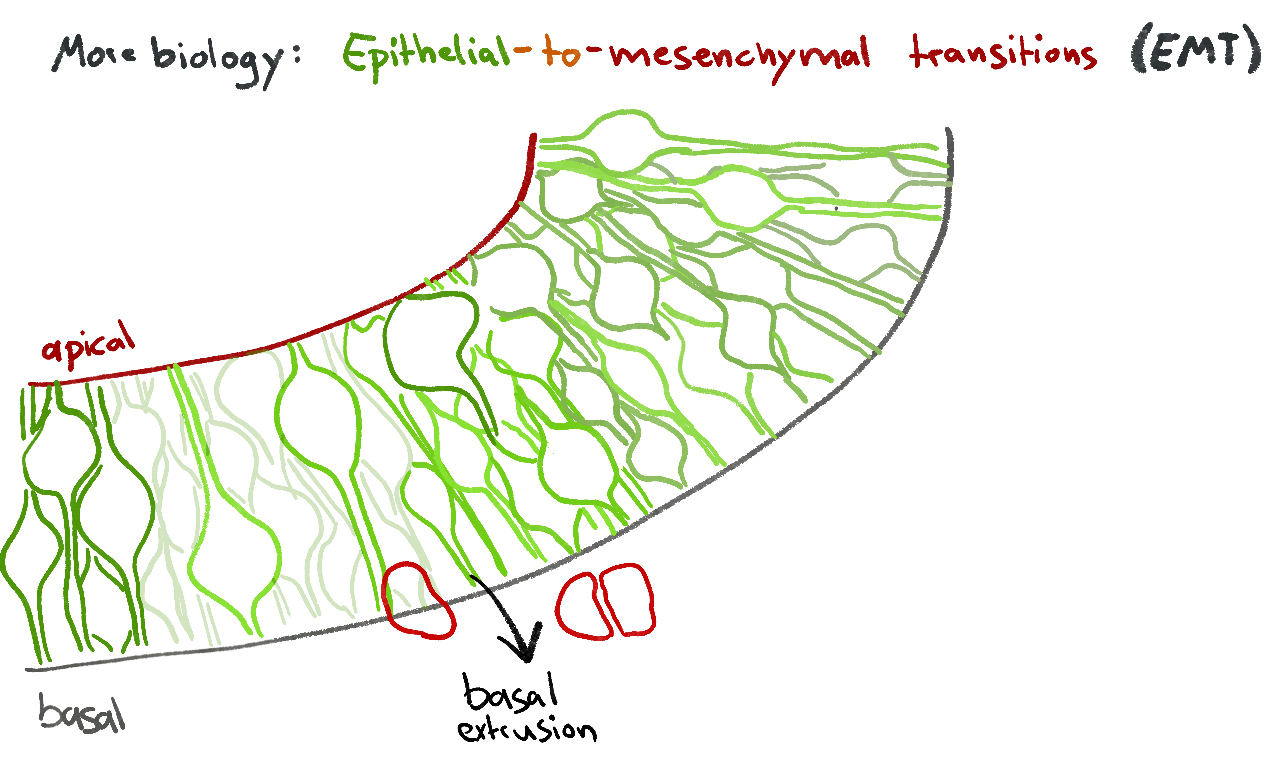 More biology: Epithelial-to-mesenchymal transitions (EMT)
apical
basal
basal
extrusion